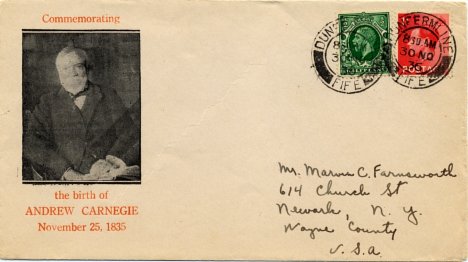 Commemorating
the birth of
ANDREW CARNEGIE
November 25, 1835
DUNFERMLINE
830 AM
30 NO
35
FIFE
Mr. Marvin C. Farnsworth
614 Church St
Newark, N. Y.
Wayne County
U.S.a